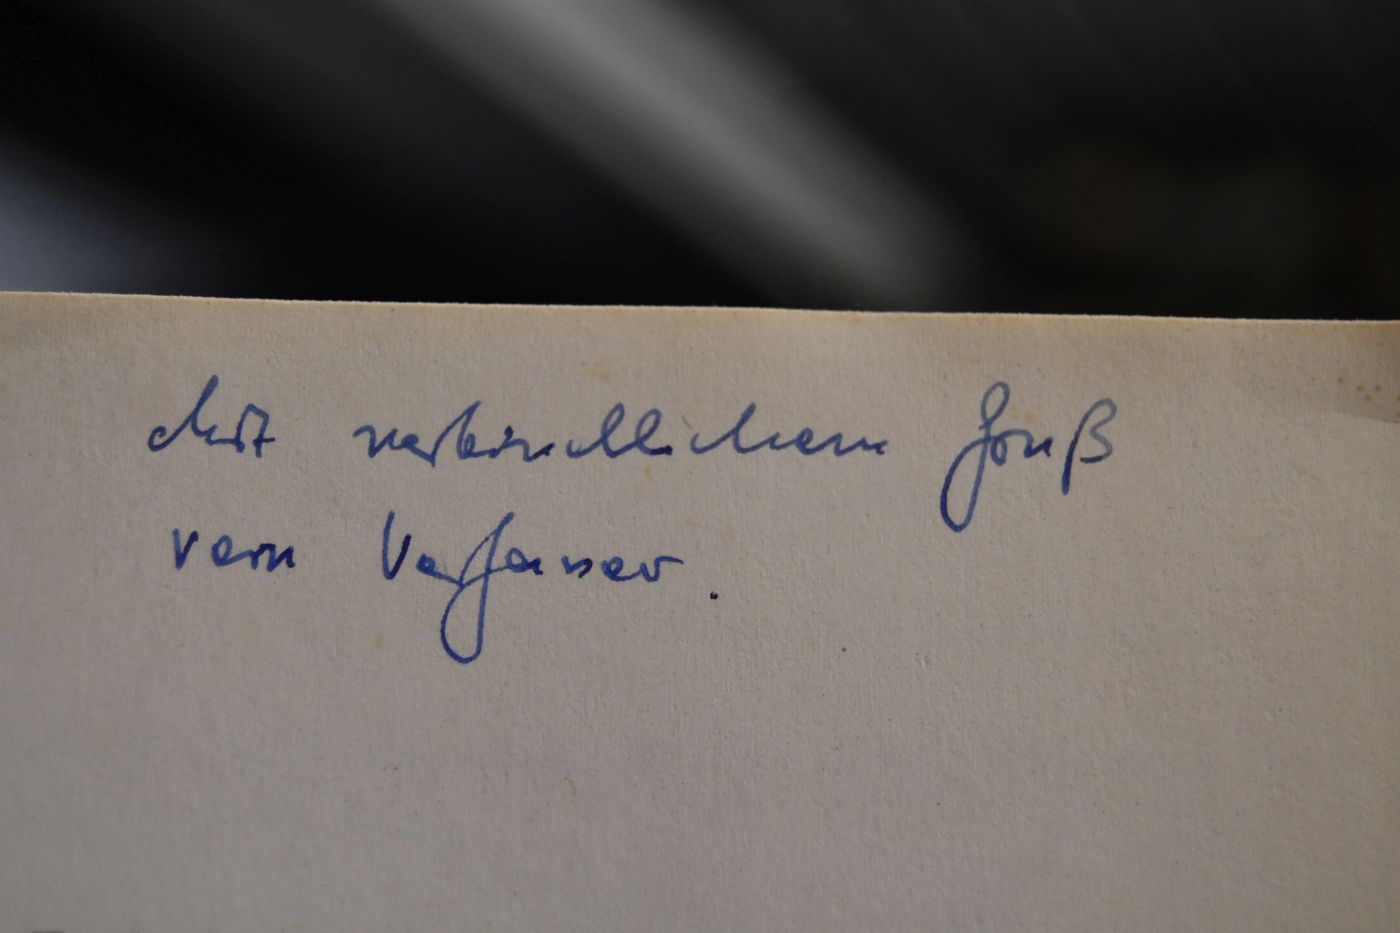 Mit verbindlichem Gruß
vom Verfasser.